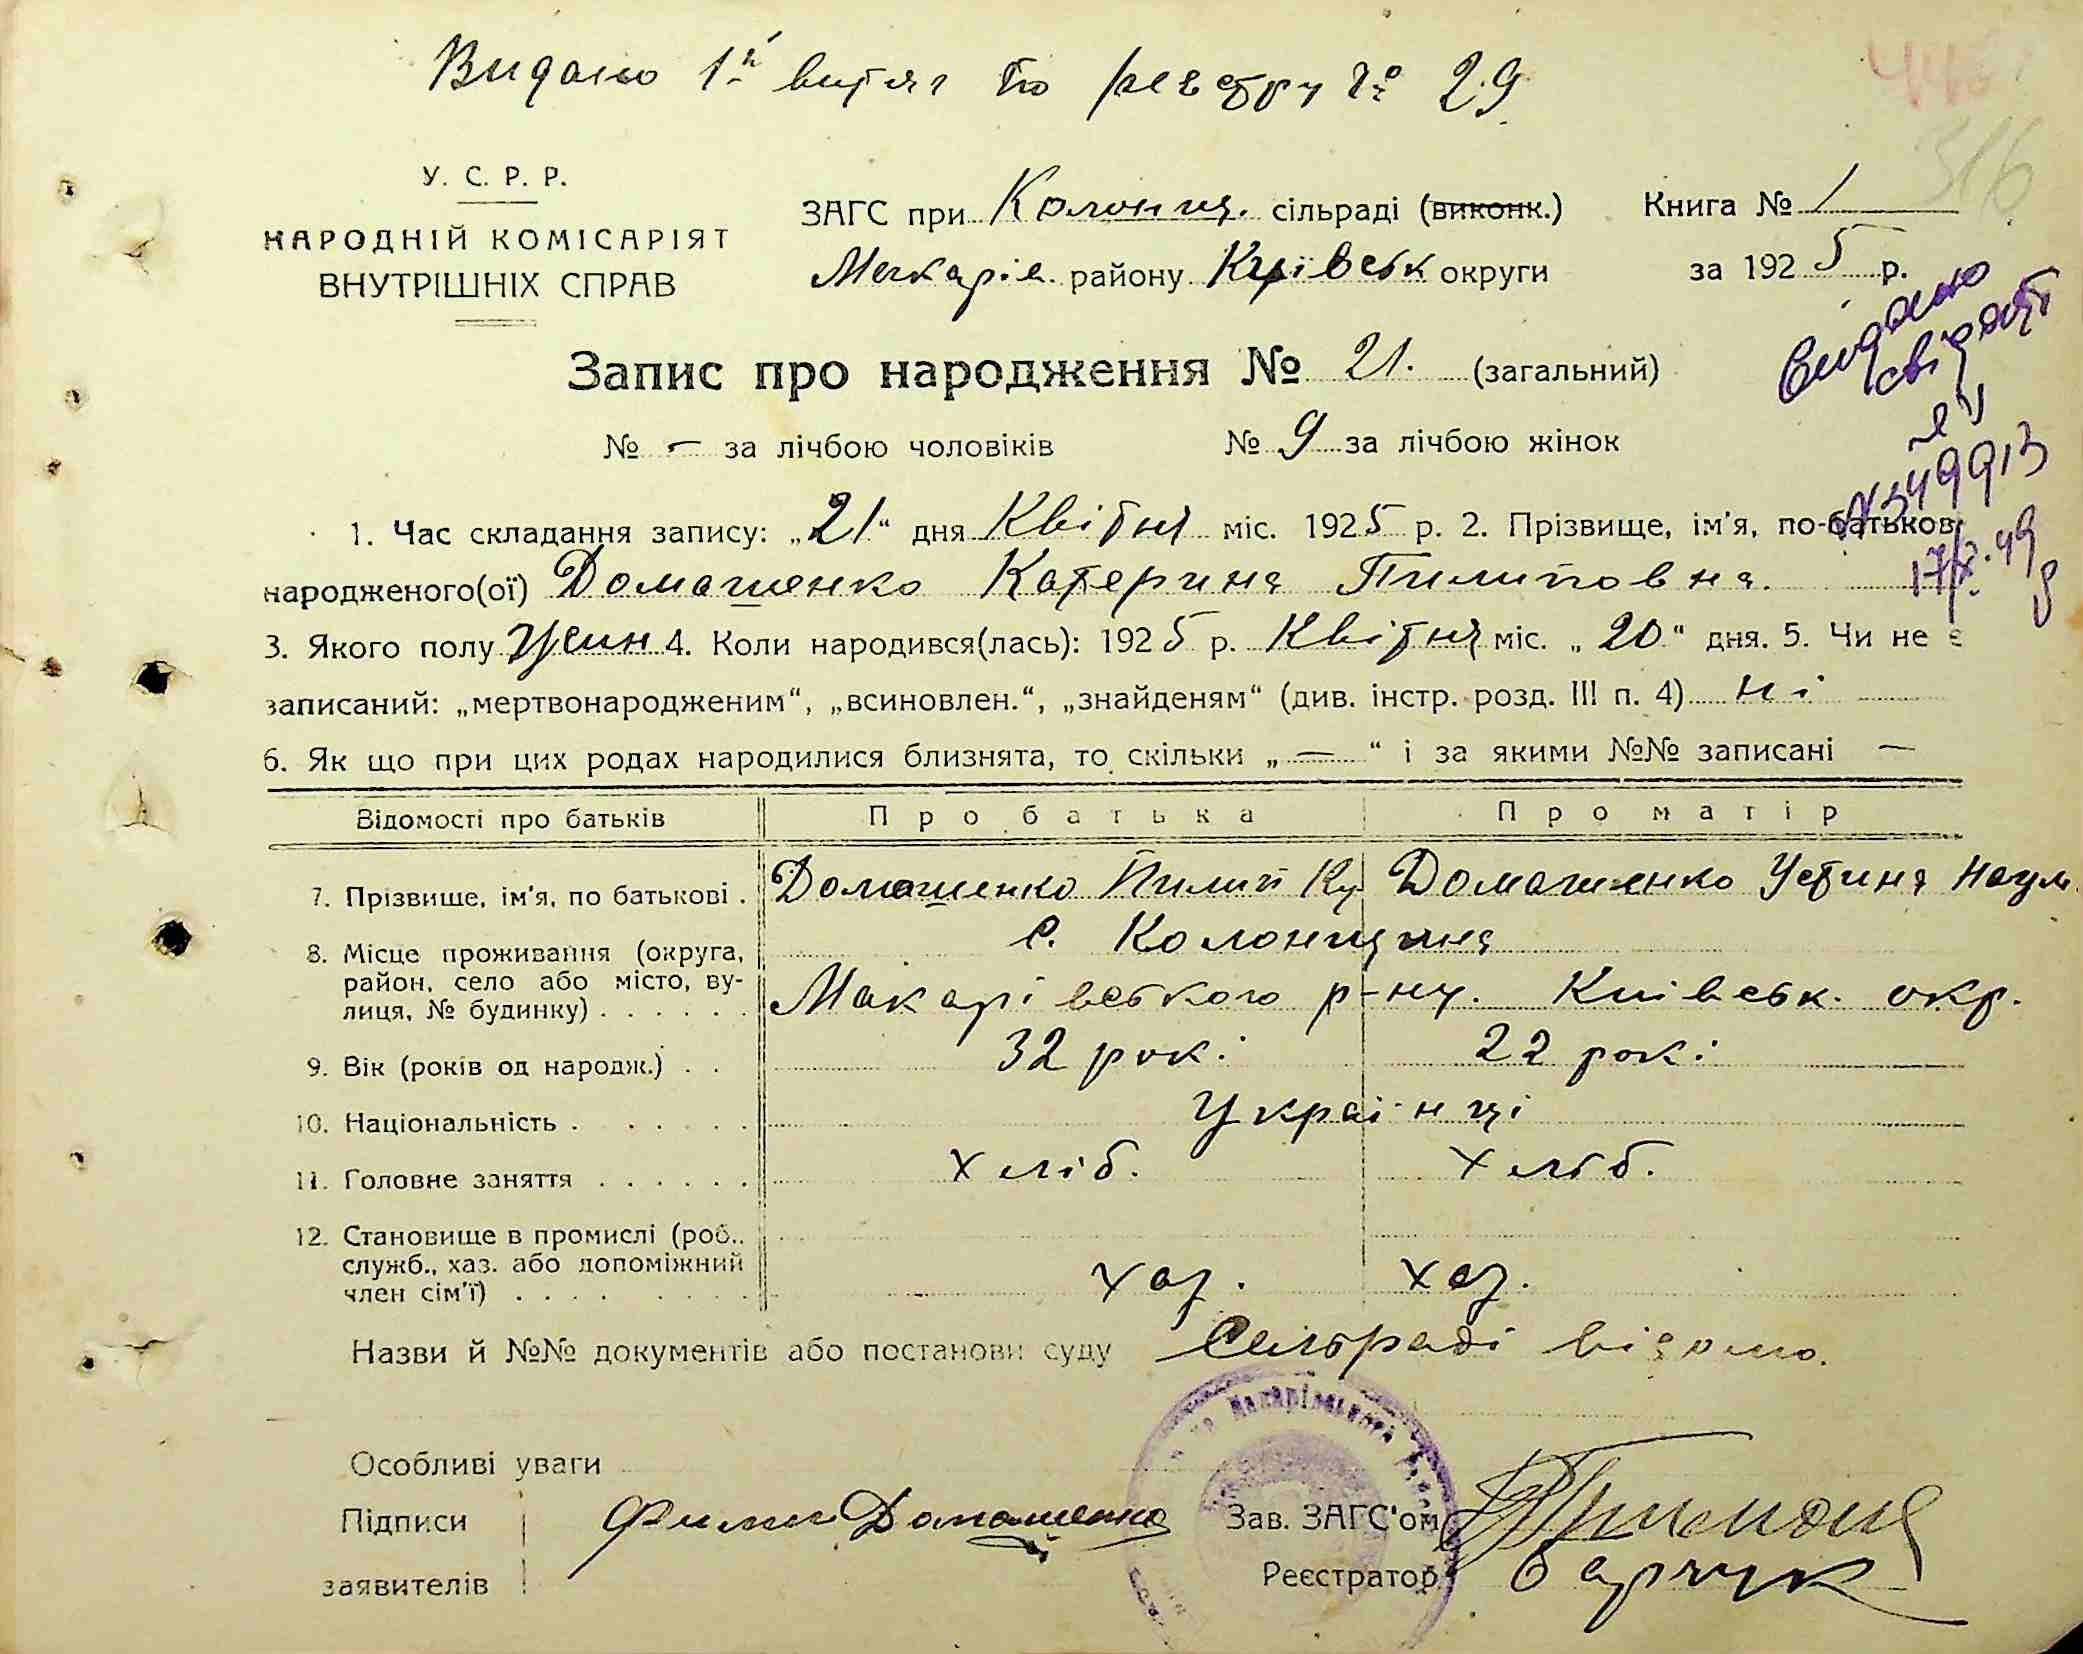 Видано 1й витяг по реєстру № 29
316
У. С. Р. Р.
НАРОДНІЙ КОМІСАРІЯТ
ВНУТРІШНІХ СПРАВ
ЗАГС при Колонщ. сільраді (виконк.)
Макарів. району Київськ округи
Книга № 1
за 1925 р.
Видано
свідоцт
Запис про народження № 21. (загальний)
№ - за лічбою чоловіків № 9 за лічбою жінок
349913
1. Час складання запису: „21“ дня Квітня міс. 1925 р. 2. Прізвище, ім'я, по-батькові
народженого(ої) Домашенко Катерина Пилиповна.
3. Якого полу жін 4. Коли народився(лась): 1925 р. Квітня міс. „20“ дня. 5. Чи не є
записаний: „мертвонародженим“, „всиновлен.“, „знайденям“ (див. інстр. розд. III п. 4) ні
6. Як що при цих родах народилися близнята, то скільки „—“ і за якими №№ записані —
Відомості про батьків Про батька Про матір
7. Прізвище, ім'я, по батькові . Домашенко Пилип Ку Домашенко Устина Наум.
8. Місце проживання (округа, район, село або місто, вулиця, № будинку) . . . . . .
с. Колонщина
Макарівського р-ну. Київськ. окр.
9. Вік (років од народж.) . . 32 рокі 22 рокі
10. Національність . . . . . . Українці
11. Головне заняття . . . . . . хліб. хліб.
12. Становище в промислі (роб., служб., хаз. або допоміжний член сім'ї) . . . . . . . . хаз. хаз.
Назви й №№ документів або постанови суду Сельраді відомо.
Особливі уваги
Підписи
заявителів
Филип Домашенко
Макарівського
Зав. ЗАГС'ом
Реєстратор Барчук